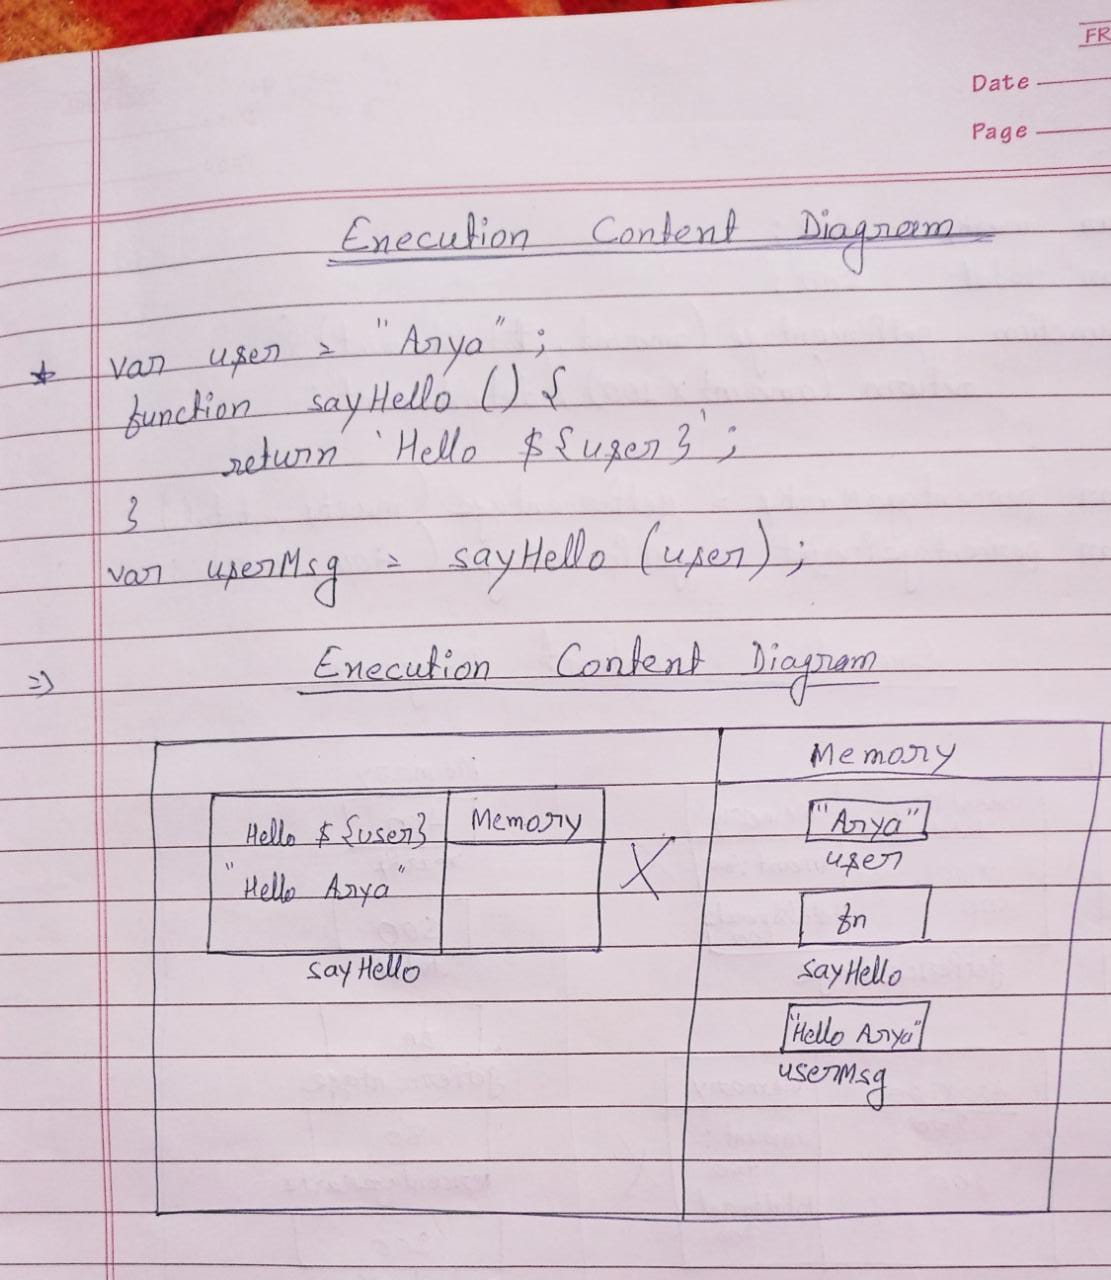 FR
Date
Page
Execution Content Diagram
* var user = "Arya";
function sayHello () {
return `Hello ${user}`;
}
var userMsg = sayHello (user);
=> Execution Content Diagram
Memory
Hello ${user}
Memory
"Hello Arya"
sayHello
X
"Arya"
user
fn
sayHello
"Hello Arya"
userMsg